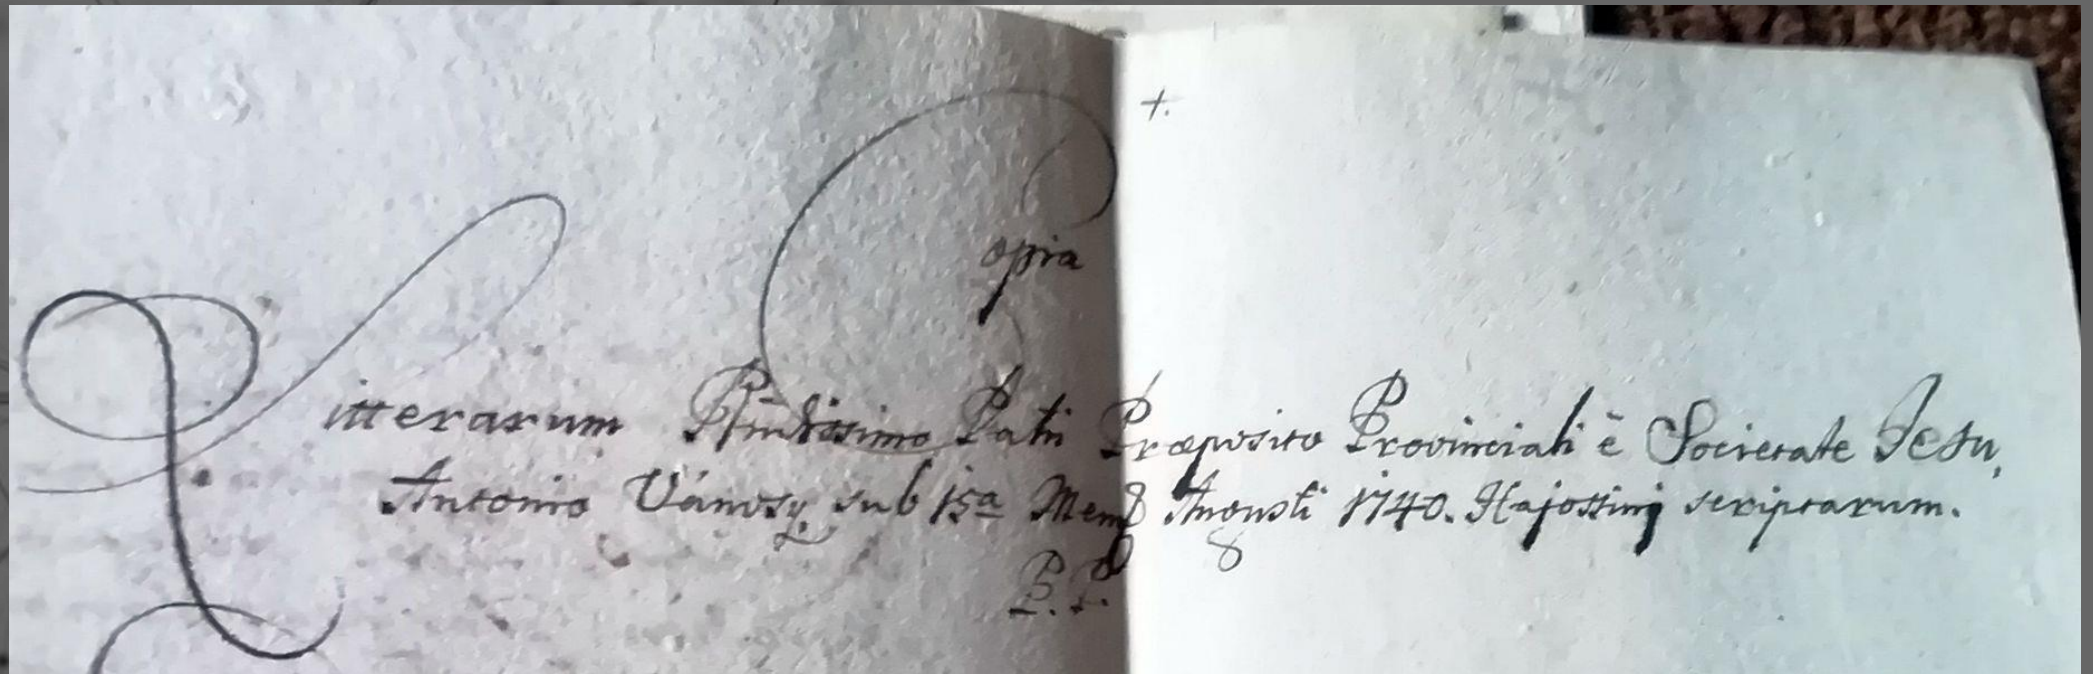 +.
Copia
Litterarum Rñdissimo Patri Præposito Provinciali è Societate Jesu,
Antonio Vánosy sub 15a Mens Augusti 1740. Hajossini scriptarum.
P. P.